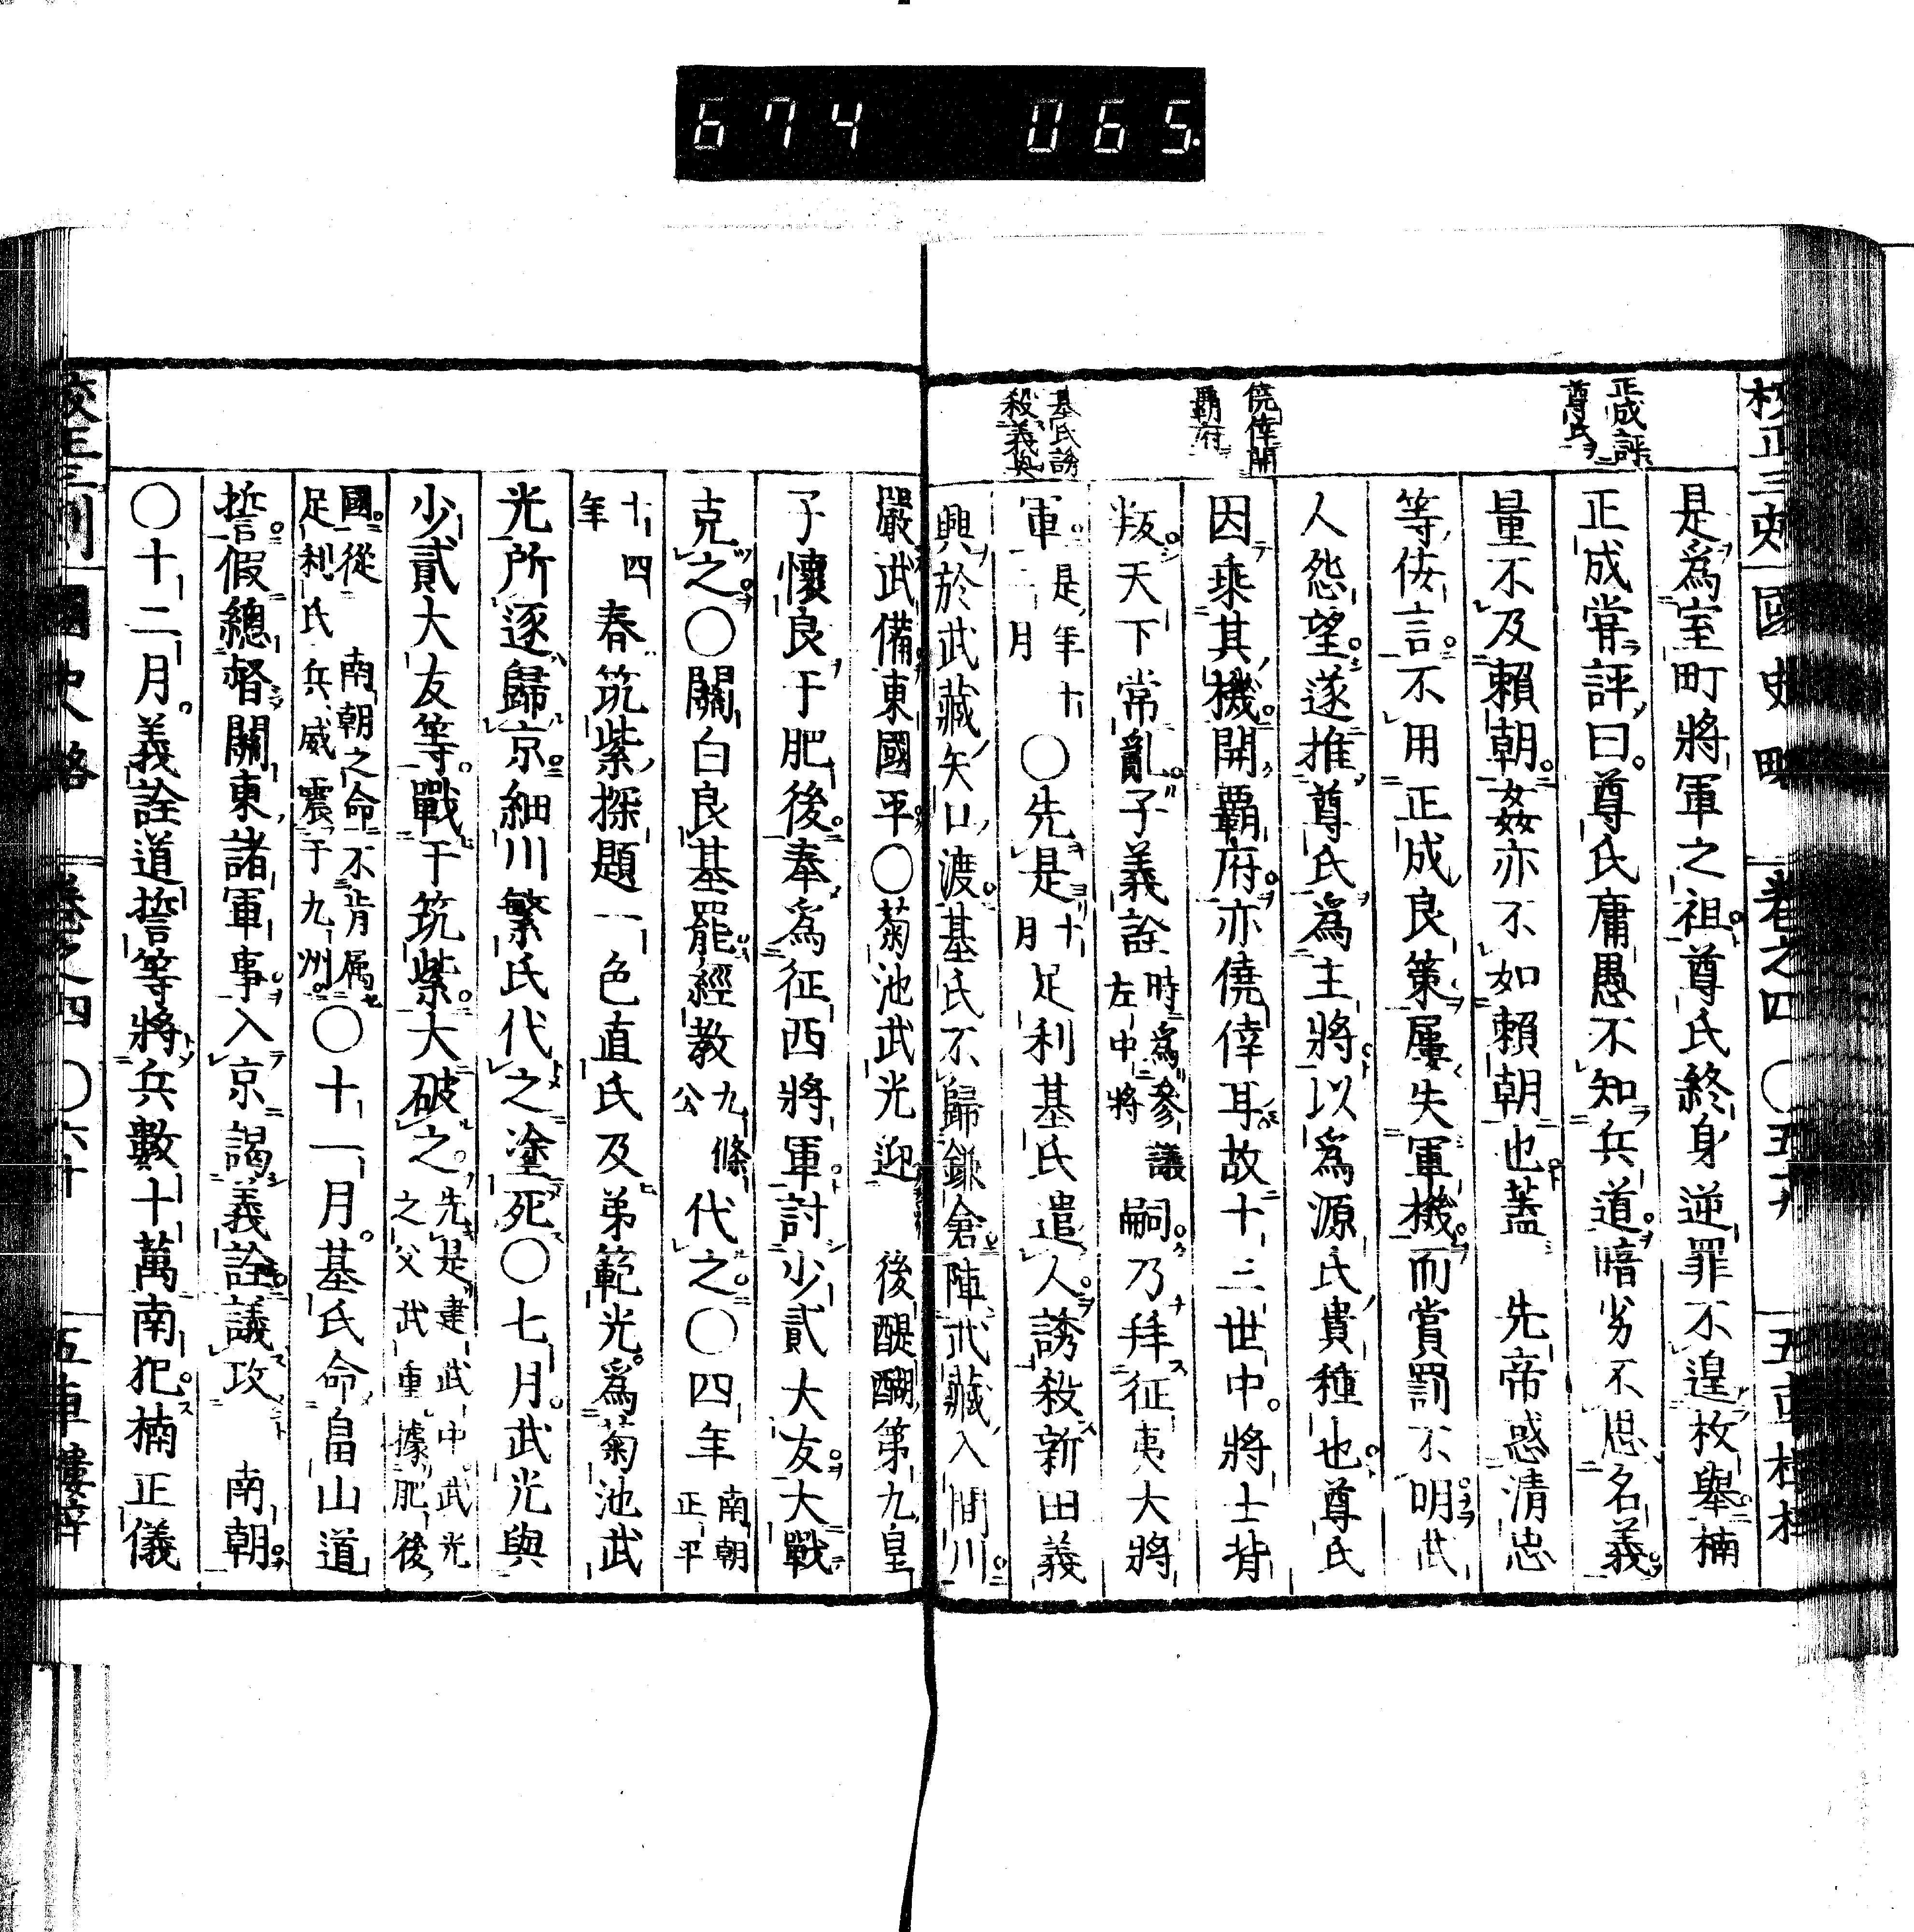 674 065
校正三刻 國史略 卷之四 〇五十九 五車樓梓
正成評
尊氏
僥倖開
覇府
基氏誘
殺義興
是爲室町將軍之祖尊氏終身逆罪不遑枚舉楠
正成甞評曰尊氏庸愚不知兵道暗劣不思名義
量不及賴朝姦亦不如賴朝也蓋 先帝惑清忠
等佞言不用正成良策屢失軍機而賞罰不明武
人怨望遂推尊氏爲主將以爲源氏貴種也尊氏
因乘其機開覇府亦僥倖耳故十三世中將士背
叛天下常亂子義詮時爲參議左中將嗣乃拜征夷大將
軍是年十二月〇先是十月足利基氏遣人誘殺新田義
興於武藏矢口渡基氏不歸鎌倉陣武藏入間川
嚴武備東國平〇菊池武光迎 後醍醐第九皇
子懷良于肥後奉爲征西將軍討少貳大友大戰
克之〇關白良基罷經教九條公代之〇四年南朝正平
十四年春筑紫探題一色直氏及弟範光爲菊池武
光所逐歸京細川繁氏代之塗死〇七月武光與
少貳大友等戰于筑紫大破之先是建武中武光之父武重據肥後
國從 南朝之命不肯属足利氏兵威震于九洲〇十一月基氏命畠山道
誓假總督關東諸軍事入京謁義詮議攻 南朝
〇十二月義詮道誓等將兵數十萬南犯楠正儀
校正三刻 國史略 卷之四 〇六十 五車樓梓